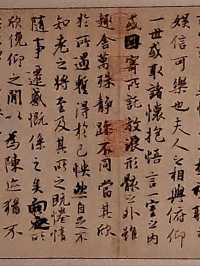 娛信可樂也夫人之相與俯仰
一世或取諸懷抱悟言一室之內
或因寄所託放浪形骸之外雖
趣舍萬殊靜躁不同當其欣
於所遇暫得於己快然自足不
知老之將至及其所之既惓情
隨事遷感慨係之矣向之所
欣俛仰之間以為陳迹猶不